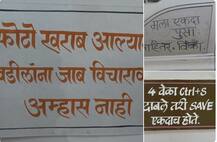 फोटो खराब आल्यास
वडीलांना जाब विचारावा
अम्हास नाही
मला एकदा
पुसा
4 वेळा Ctrl+S
दाबले तरी SAVE
एकदाच होते.